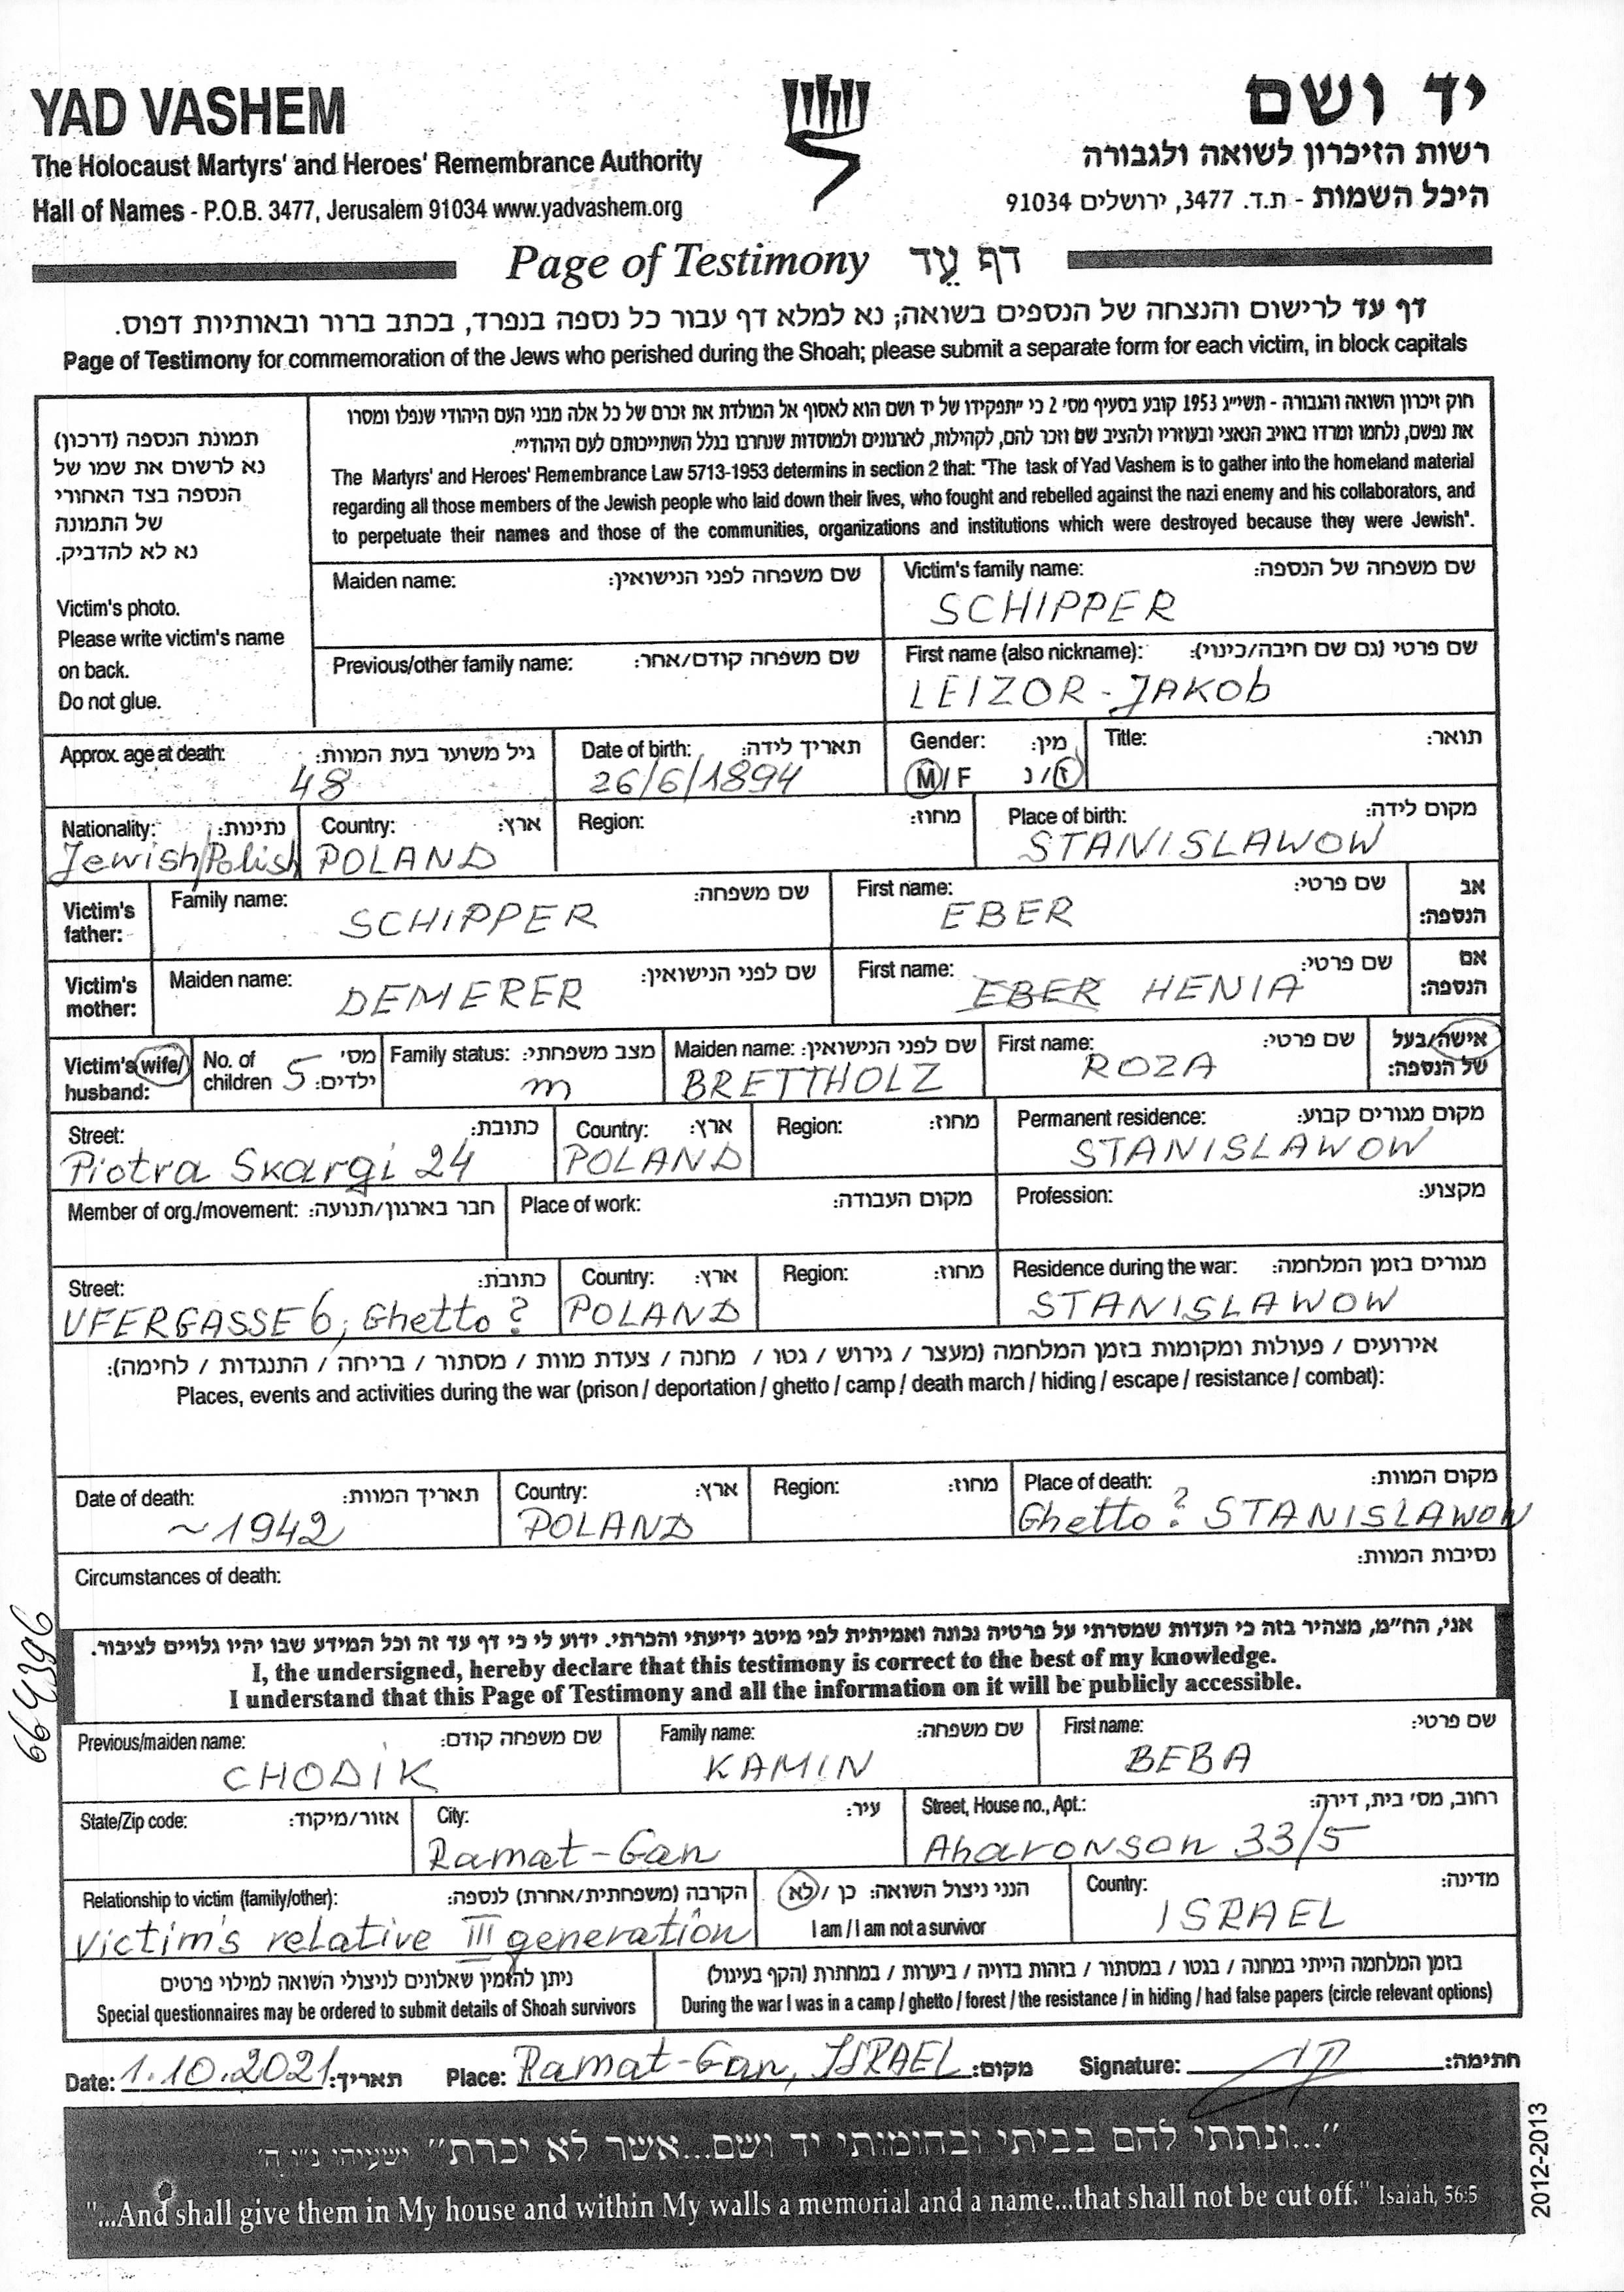 YAD VASHEM
The Holocaust Martyrs' and Heroes' Remembrance Authority
Hall of Names - P.O.B. 3477, Jerusalem 91034 www.yadvashem.org
יד ושם
רשות הזיכרון לשואה ולגבורה
היכל השמות - ת.ד. 3477, ירושלים 91034
Page of Testimony דף עֵד
דף עד לרישום והנצחה של הנספים בשואה; נא למלא דף עבור כל נספה בנפרד, בכתב ברור ובאותיות דפוס.
Page of Testimony for commemoration of the Jews who perished during the Shoah; please submit a separate form for each victim, in block capitals
תמונת הנספה (דרכון)
נא לרשום את שמו של
הנספה בצד האחורי
של התמונה
נא לא להדביק.
Victim's photo.
Please write victim's name
on back.
Do not glue.
חוק זיכרון השואה והגבורה - תשי״ג 1953 קובע בסעיף מס' 2 כי ״תפקידו של יד ושם הוא לאסוף אל המולדת את זכרם של כל אלה מבני העם היהודי שנפלו ומסרו
את נפשם, נלחמו ומרדו באויב הנאצי ובעוזריו ולהציב שם וזכר להם, לקהילות, לארגונים ולמוסדות שנחרבו בגלל השתייכותם לעם היהודי״.
The Martyrs' and Heroes' Remembrance Law 5713-1953 determins in section 2 that: "The task of Yad Vashem is to gather into the homeland material
regarding all those members of the Jewish people who laid down their lives, who fought and rebelled against the nazi enemy and his collaborators, and
to perpetuate their names and those of the communities, organizations and institutions which were destroyed because they were Jewish".
Maiden name: שם משפחה לפני הנישואין:
Victim's family name: שם משפחה של הנספה:
SCHIPPER
Previous/other family name: שם משפחה קודם/אחר:
First name (also nickname): שם פרטי (גם שם חיבה/כינוי):
LEIZOR - JAKOb
Approx. age at death: גיל משוער בעת המוות:
48
Date of birth: תאריך לידה:
26/6/1894
Gender: מין:
M/F ז/נ
Title: תואר:
Nationality: נתינות:
Jewish/Polish
Country: ארץ:
POLAND
Region: מחוז:
Place of birth: מקום לידה:
STANISLAWOW
Victim's father:
Family name: שם משפחה:
SCHIPPER
First name: שם פרטי:
EBER
אב הנספה:
Victim's mother:
Maiden name: שם לפני הנישואין:
DEMERER
First name: שם פרטי:
EBER HENIA
אם הנספה:
Victim's wife/ husband:
No. of children 5 מס' ילדים:
Family status: מצב משפחתי:
m
Maiden name: שם לפני הנישואין:
BRETTHOLZ
First name: שם פרטי:
ROZA
אישה/בעל של הנספה:
Street: כתובת:
Piotra Skargi 24
Country: ארץ:
POLAND
Region: מחוז:
Permanent residence: מקום מגורים קבוע:
STANISLAWOW
Member of org./movement: חבר בארגון/תנועה:
Place of work: מקום העבודה:
Profession: מקצוע:
Street: כתובת:
UFERGASSE 6, Ghetto?
Country: ארץ:
POLAND
Region: מחוז:
Residence during the war: מגורים בזמן המלחמה:
STANISLAWOW
אירועים / פעולות ומקומות בזמן המלחמה (מעצר / גירוש / גטו / מחנה / צעדת מוות / מסתור / בריחה / התנגדות / לחימה):
Places, events and activities during the war (prison / deportation / ghetto / camp / death march / hiding / escape / resistance / combat):
Date of death: תאריך המוות:
~1942
Country: ארץ:
POLAND
Region: מחוז:
Place of death: מקום המוות:
Ghetto? STANISLAWOW
Circumstances of death: נסיבות המוות:
אני, הח״מ, מצהיר בזה כי העדות שמסרתי על פרטיה נכונה ואמיתית לפי מיטב ידיעתי והכרתי. ידוע לי כי דף עד זה וכל המידע שבו יהיו גלויים לציבור.
I, the undersigned, hereby declare that this testimony is correct to the best of my knowledge.
I understand that this Page of Testimony and all the information on it will be publicly accessible.
664396
Previous/maiden name: שם משפחה קודם:
CHODIK
Family name: שם משפחה:
KAMIN
First name: שם פרטי:
BEBA
State/Zip code: אזור/מיקוד:
City: עיר:
Ramat-Gan
Street, House no., Apt.: רחוב, מס' בית, דירה:
Aharonson 33/5
Relationship to victim (family/other): הקרבה (משפחתית/אחרת) לנספה:
Victim's relative III generation
הנני ניצול השואה: כן / לא
I am / I am not a survivor
Country: מדינה:
ISRAEL
ניתן להזמין שאלונים לניצולי השואה למילוי פרטים
Special questionnaires may be ordered to submit details of Shoah survivors
בזמן המלחמה הייתי במחנה / בגטו / במסתור / בזהות בדויה / ביערות / במחתרת (הקף בעיגול)
During the war I was in a camp / ghetto / forest / the resistance / in hiding / had false papers (circle relevant options)
Date: 1.10.2021 תאריך: Place: Ramat-Gan, ISRAEL מקום: Signature: חתימה:
״...ונתתי להם בביתי ובחומותי יד ושם...אשר לא יכרת״ ישעיהו נ״ו ה'
"...And shall give them in My house and within My walls a memorial and a name...that shall not be cut off." Isaiah, 56:5
2012-2013